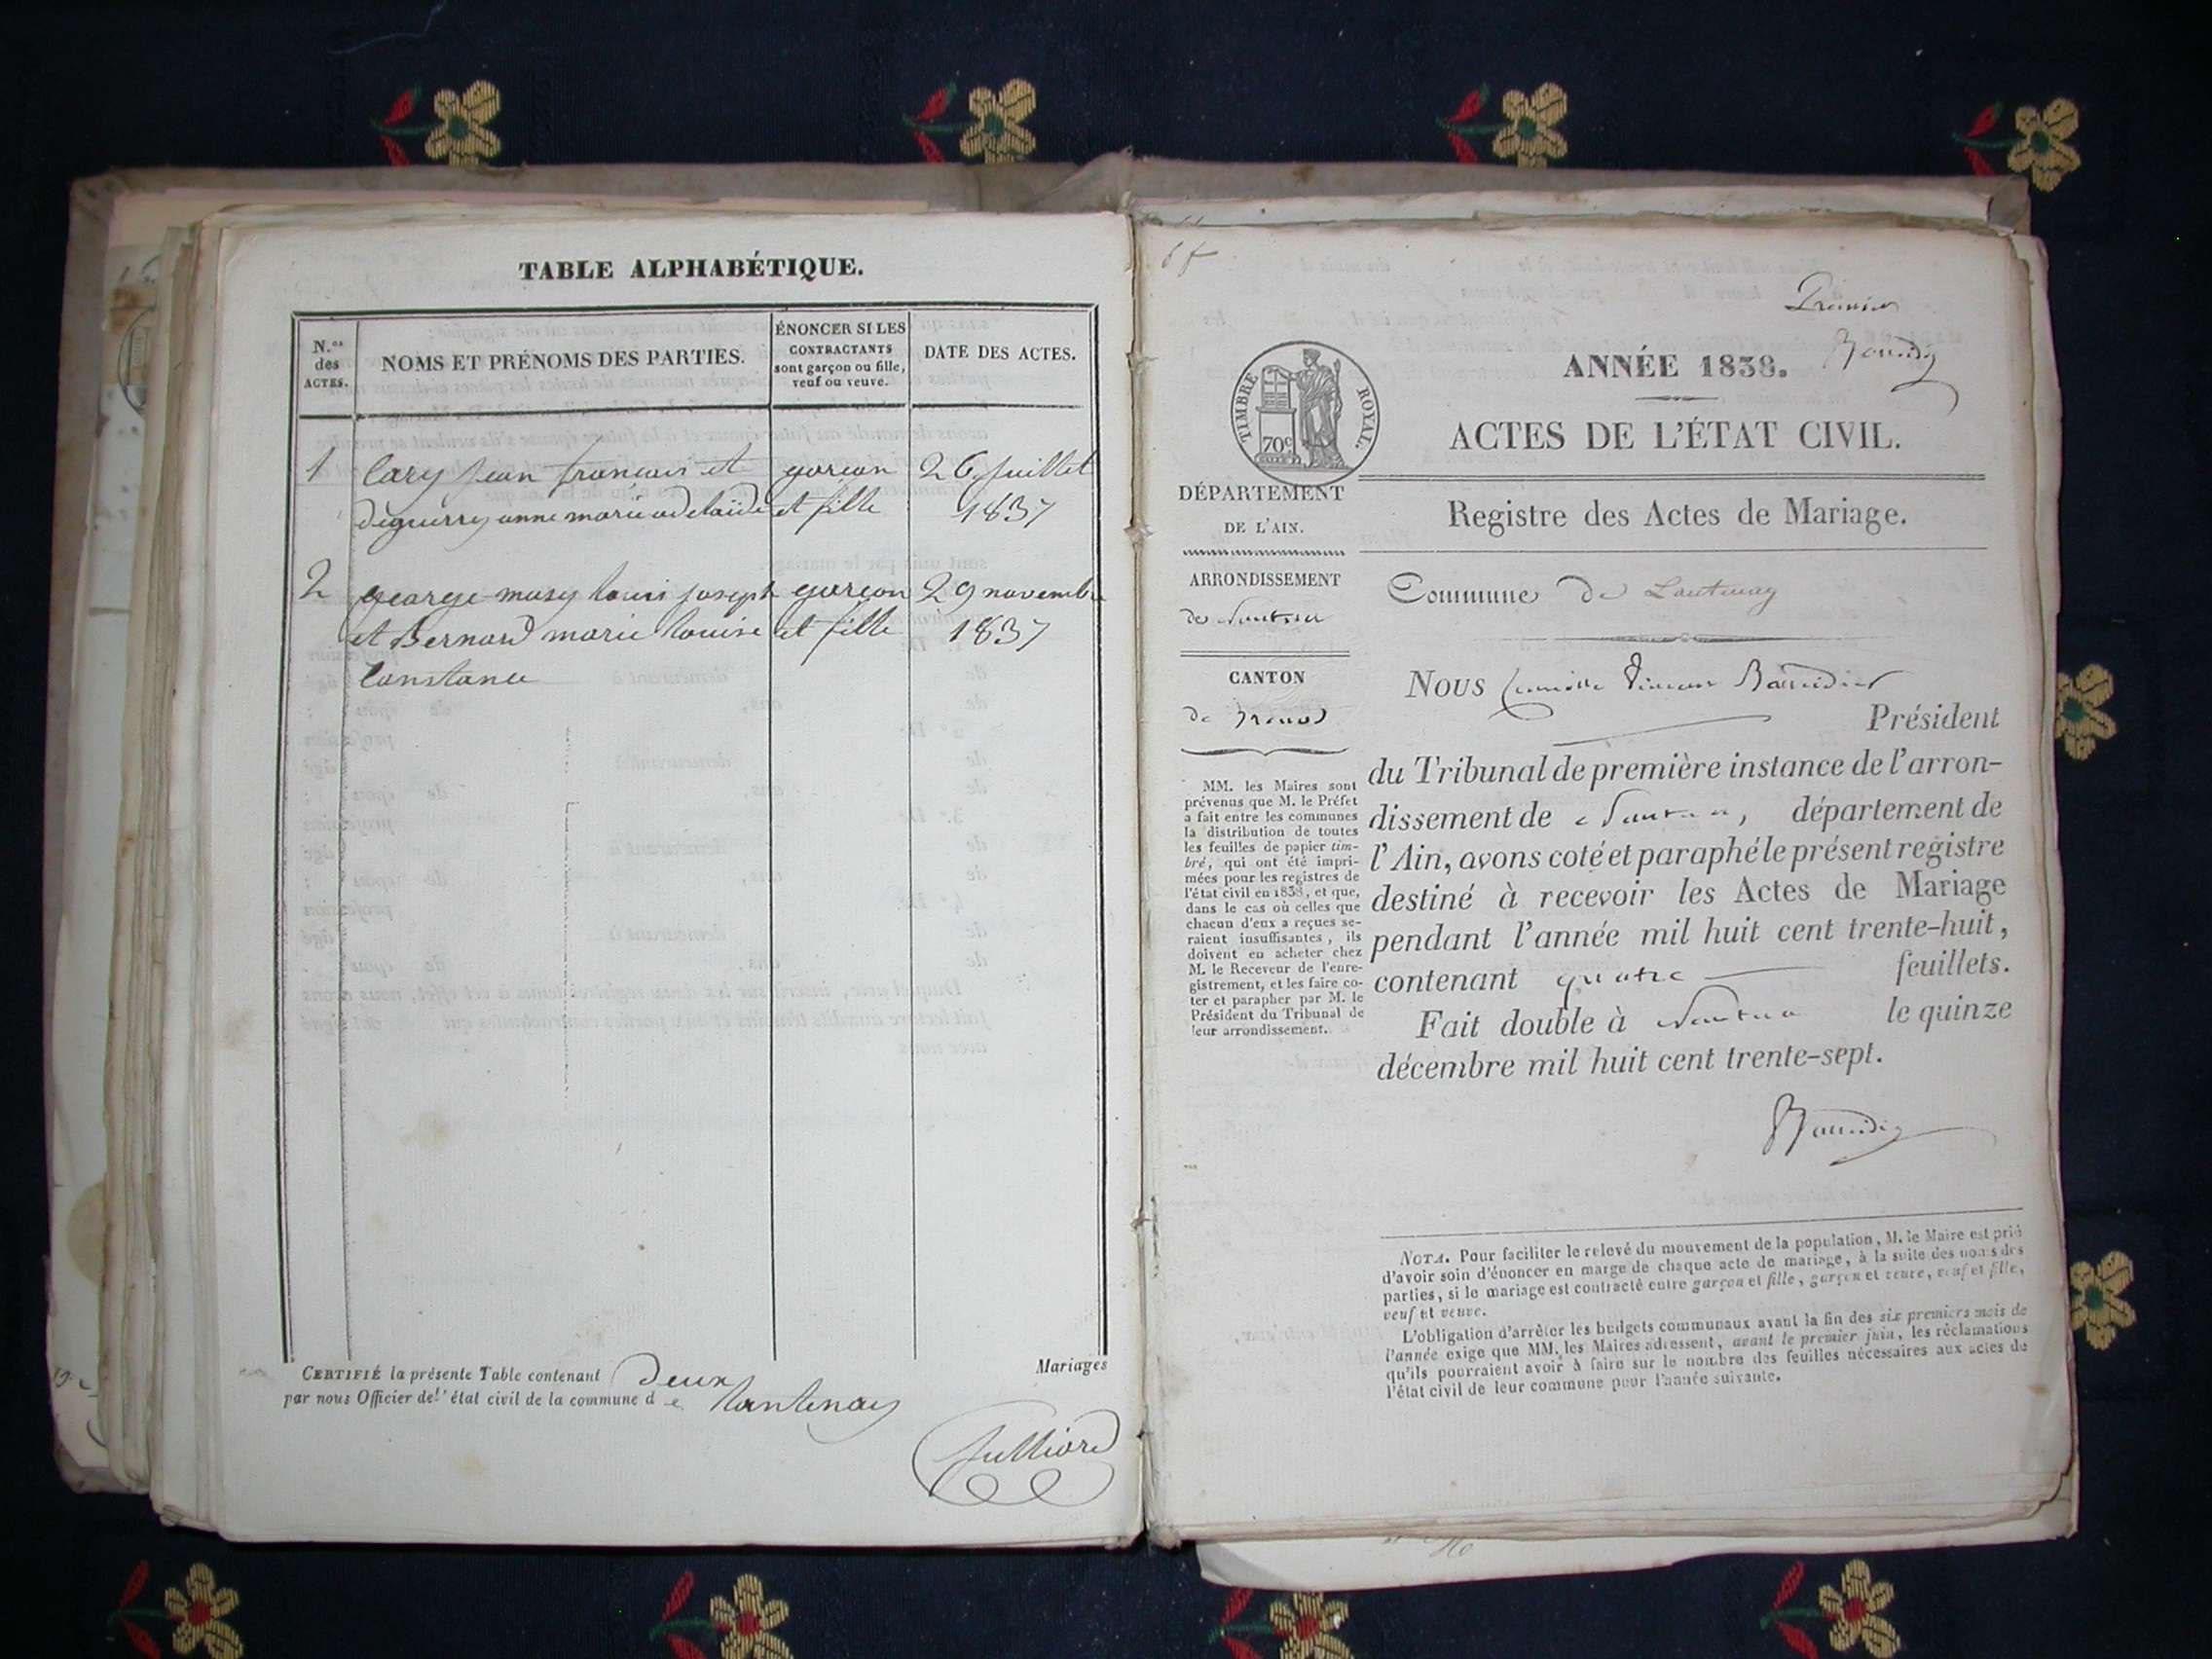 TABLE ALPHABÉTIQUE.
N.os des ACTES.
NOMS ET PRÉNOMS DES PARTIES.
ÉNONCER SI LES
CONTRACTANTS
sont garçon ou fille,
veuf ou veuve.
DATE DES ACTES.
1 Cary jean françois et garçon 26 juillet
deguerry anne marie adelaïde et fille 1837
2 george-mary louis joseph garçon 29 novembre
et Bernard marie louise et fille 1837
Constance
CERTIFIÉ la présente Table contenant Deux Mariages
par nous Officier de l'état civil de la commune de Lantenay
Julliard
Premier
ANNÉE 1838.
TIMBRE ROYAL.
70c
ACTES DE L'ÉTAT CIVIL.
DÉPARTEMENT
DE L'AIN.
Registre des Actes de Mariage.
ARRONDISSEMENT
de Nantua
Commune de Lantenay
CANTON
de Brenod
MM. les Maires sont
prévenus que M. le Préfet
a fait entre les communes
la distribution de toutes
les feuilles de papier tim-
bré, qui ont été impri-
mées pour les registres de
l'état civil en 1838, et que,
dans le cas où celles que
chacun d'eux a reçues se-
raient insuffisantes, ils
doivent en acheter chez
M. le Receveur de l'enre-
gistrement, et les faire co-
ter et parapher par M. le
Président du Tribunal de
leur arrondissement.
Nous Baudier
Président
du Tribunal de première instance de l'arron-
dissement de Nantua, département de
l'Ain, avons coté et paraphé le présent registre
destiné à recevoir les Actes de Mariage
pendant l'année mil huit cent trente-huit,
contenant quatre feuillets.
Fait double à Nantua le quinze
décembre mil huit cent trente-sept.
NOTA. Pour faciliter le relevé du mouvement de la population, M. le Maire est prié
d'avoir soin d'énoncer en marge de chaque acte de mariage, à la suite des noms des
parties, si le mariage est contracté entre garçon et fille, garçon et veuve, veuf et fille,
veuf et veuve.
L'obligation d'arrêter les budgets communaux avant la fin des six premiers mois de
l'année exige que MM. les Maires adressent, avant le premier juin, les réclamations
qu'ils pourraient avoir à faire sur le nombre des feuilles nécessaires aux actes de
l'état civil de leur commune pour l'année suivante.